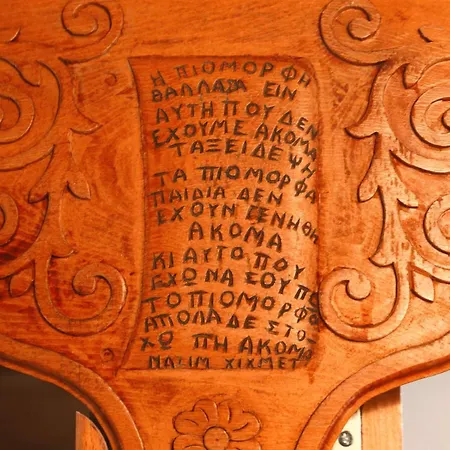 Η ΠΙΟΜΟΡΦΗ
ΘΑΛΛΑΣΑ ΕΙΝ
ΑΥΤΗ ΠΟΥ ΔΕΝ
ΕΧΟΥΜΕ ΑΚΟΜΑ
ΤΑΞΕΙΔΕΨΗ
ΤΑ ΠΙΟΜΟΡΦΑ
ΠΑΙΔΙΑ ΔΕΝ
ΕΧΟΥΝ ΓΕΝΗΘΗ
ΑΚΟΜΑ
ΚΙ ΑΥΤΟ ΠΟΥ
ΕΧΩ ΝΑ ΣΟΥ ΠΩ
ΤΟ ΠΙΟΜΟΡΦΟ
ΑΠΟΛΑ ΔΕ ΣΤΟ
ΧΩ ΠΗ ΑΚΟΜΑ
ΝΑΖΙΜ ΧΙΧΜΕΤ